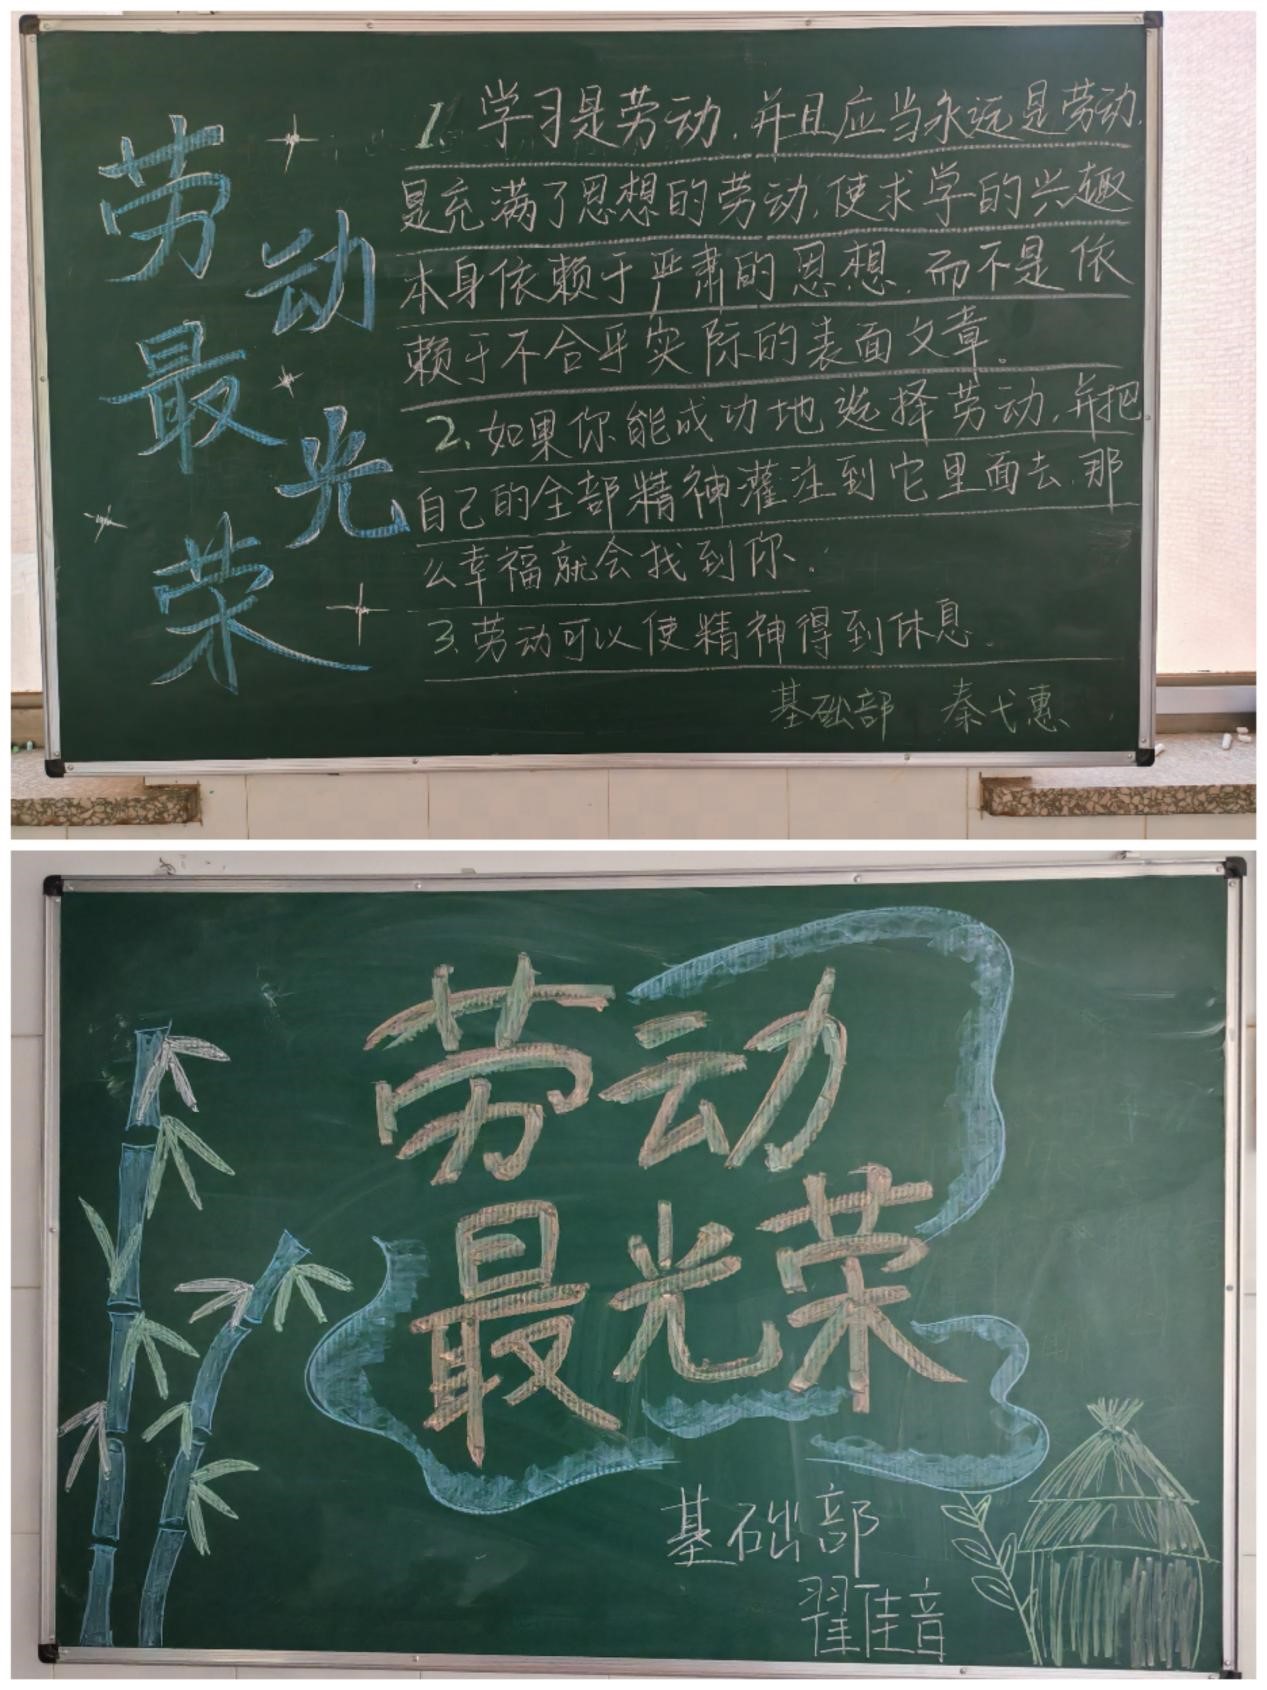 劳动
最光
荣
1. 学习是劳动,并且应当永远是劳动,
是充满了思想的劳动,使求学的兴趣
本身依赖于严肃的思想,而不是依
赖于不合乎实际的表面文章。
2、如果你能成功地选择劳动,并把
自己的全部精神灌注到它里面去,那
么幸福就会找到你。
3、劳动可以使精神得到休息。
基础部 秦弋惠
劳动
最光荣
基础部
翟佳音